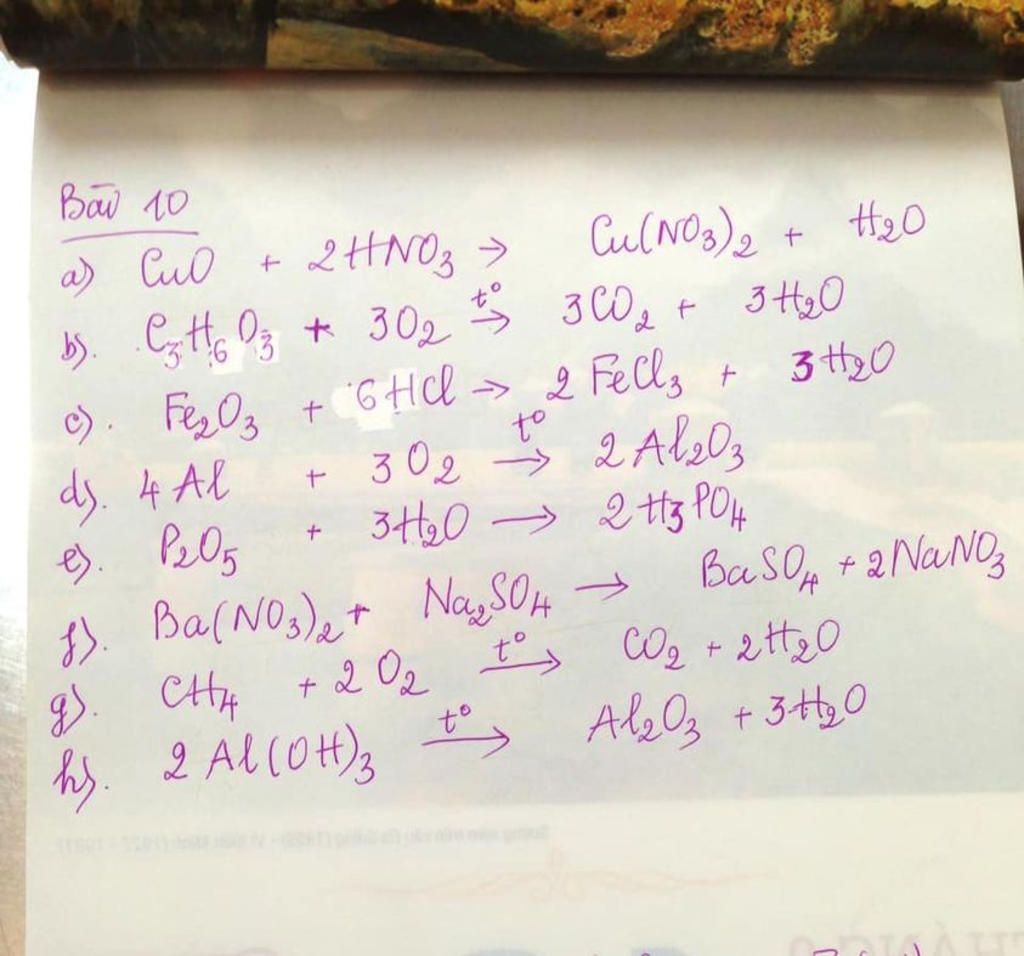 Bài 10
a) CuO + 2HNO₃ → Cu(NO₃)₂ + H₂O
b). C₃H₆O₃ + 3O₂ t° → 3CO₂ + 3H₂O
c). Fe₂O₃ + 6HCl → 2FeCl₃ + 3H₂O
d). 4Al + 3O₂ t° → 2Al₂O₃
e). P₂O₅ + 3H₂O → 2H₃PO₄
f). Ba(NO₃)₂ + Na₂SO₄ → BaSO₄ + 2NaNO₃
g). CH₄ + 2O₂ t° → CO₂ + 2H₂O
h). 2Al(OH)₃ t° → Al₂O₃ + 3H₂O